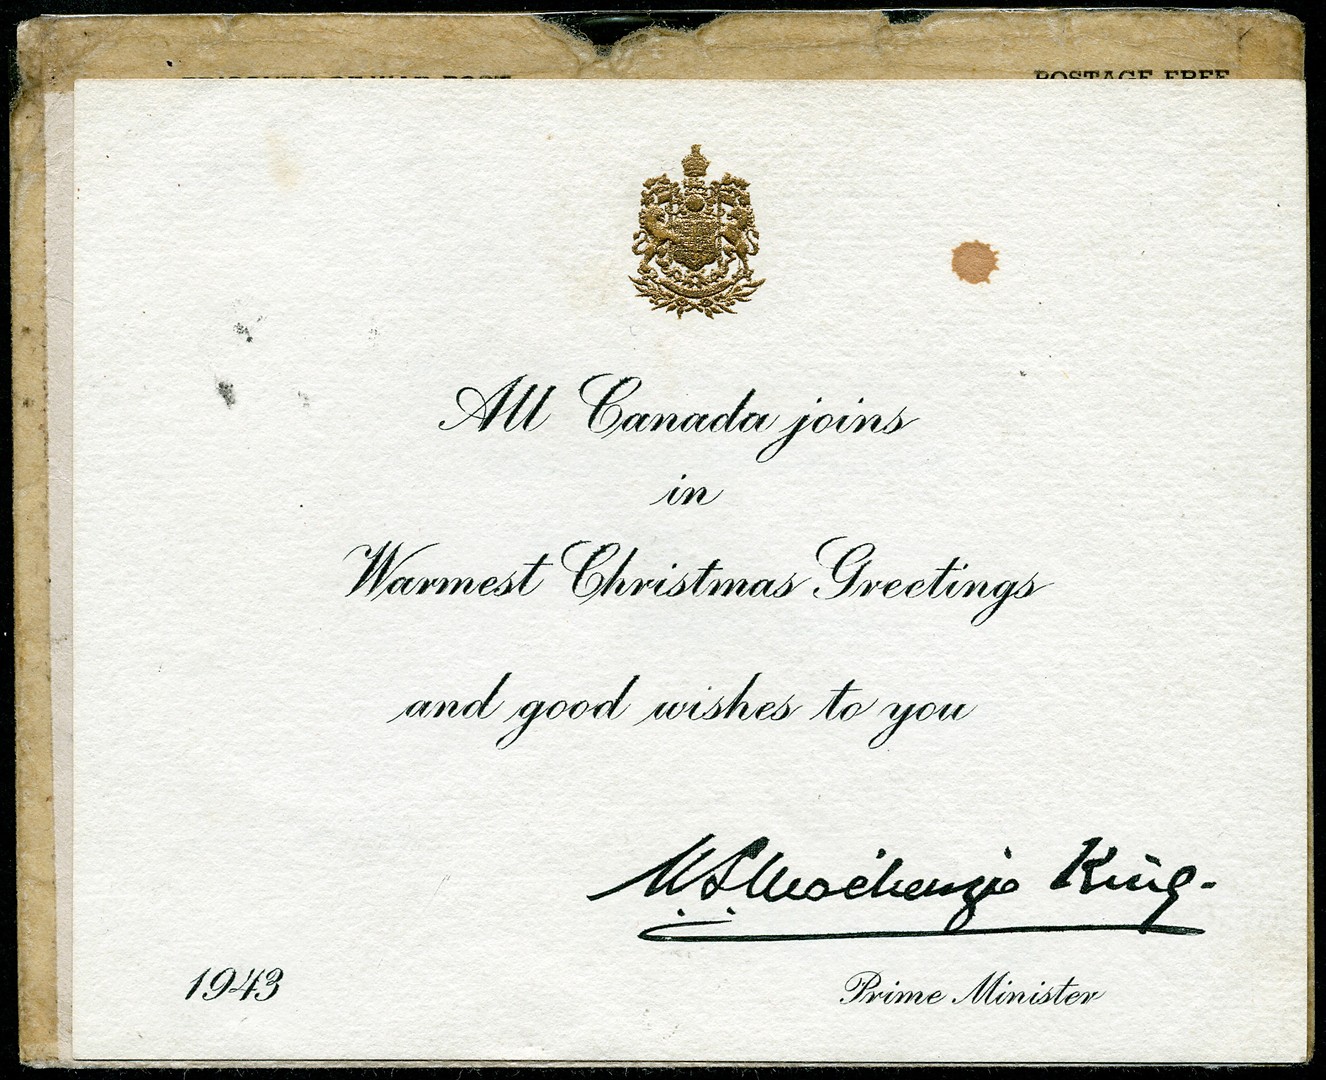 PRISONER OF WAR POST
POSTAGE FREE
All Canada joins
in
Warmest Christmas Greetings
and good wishes to you
W. L. Mackenzie King.
1943
Prime Minister